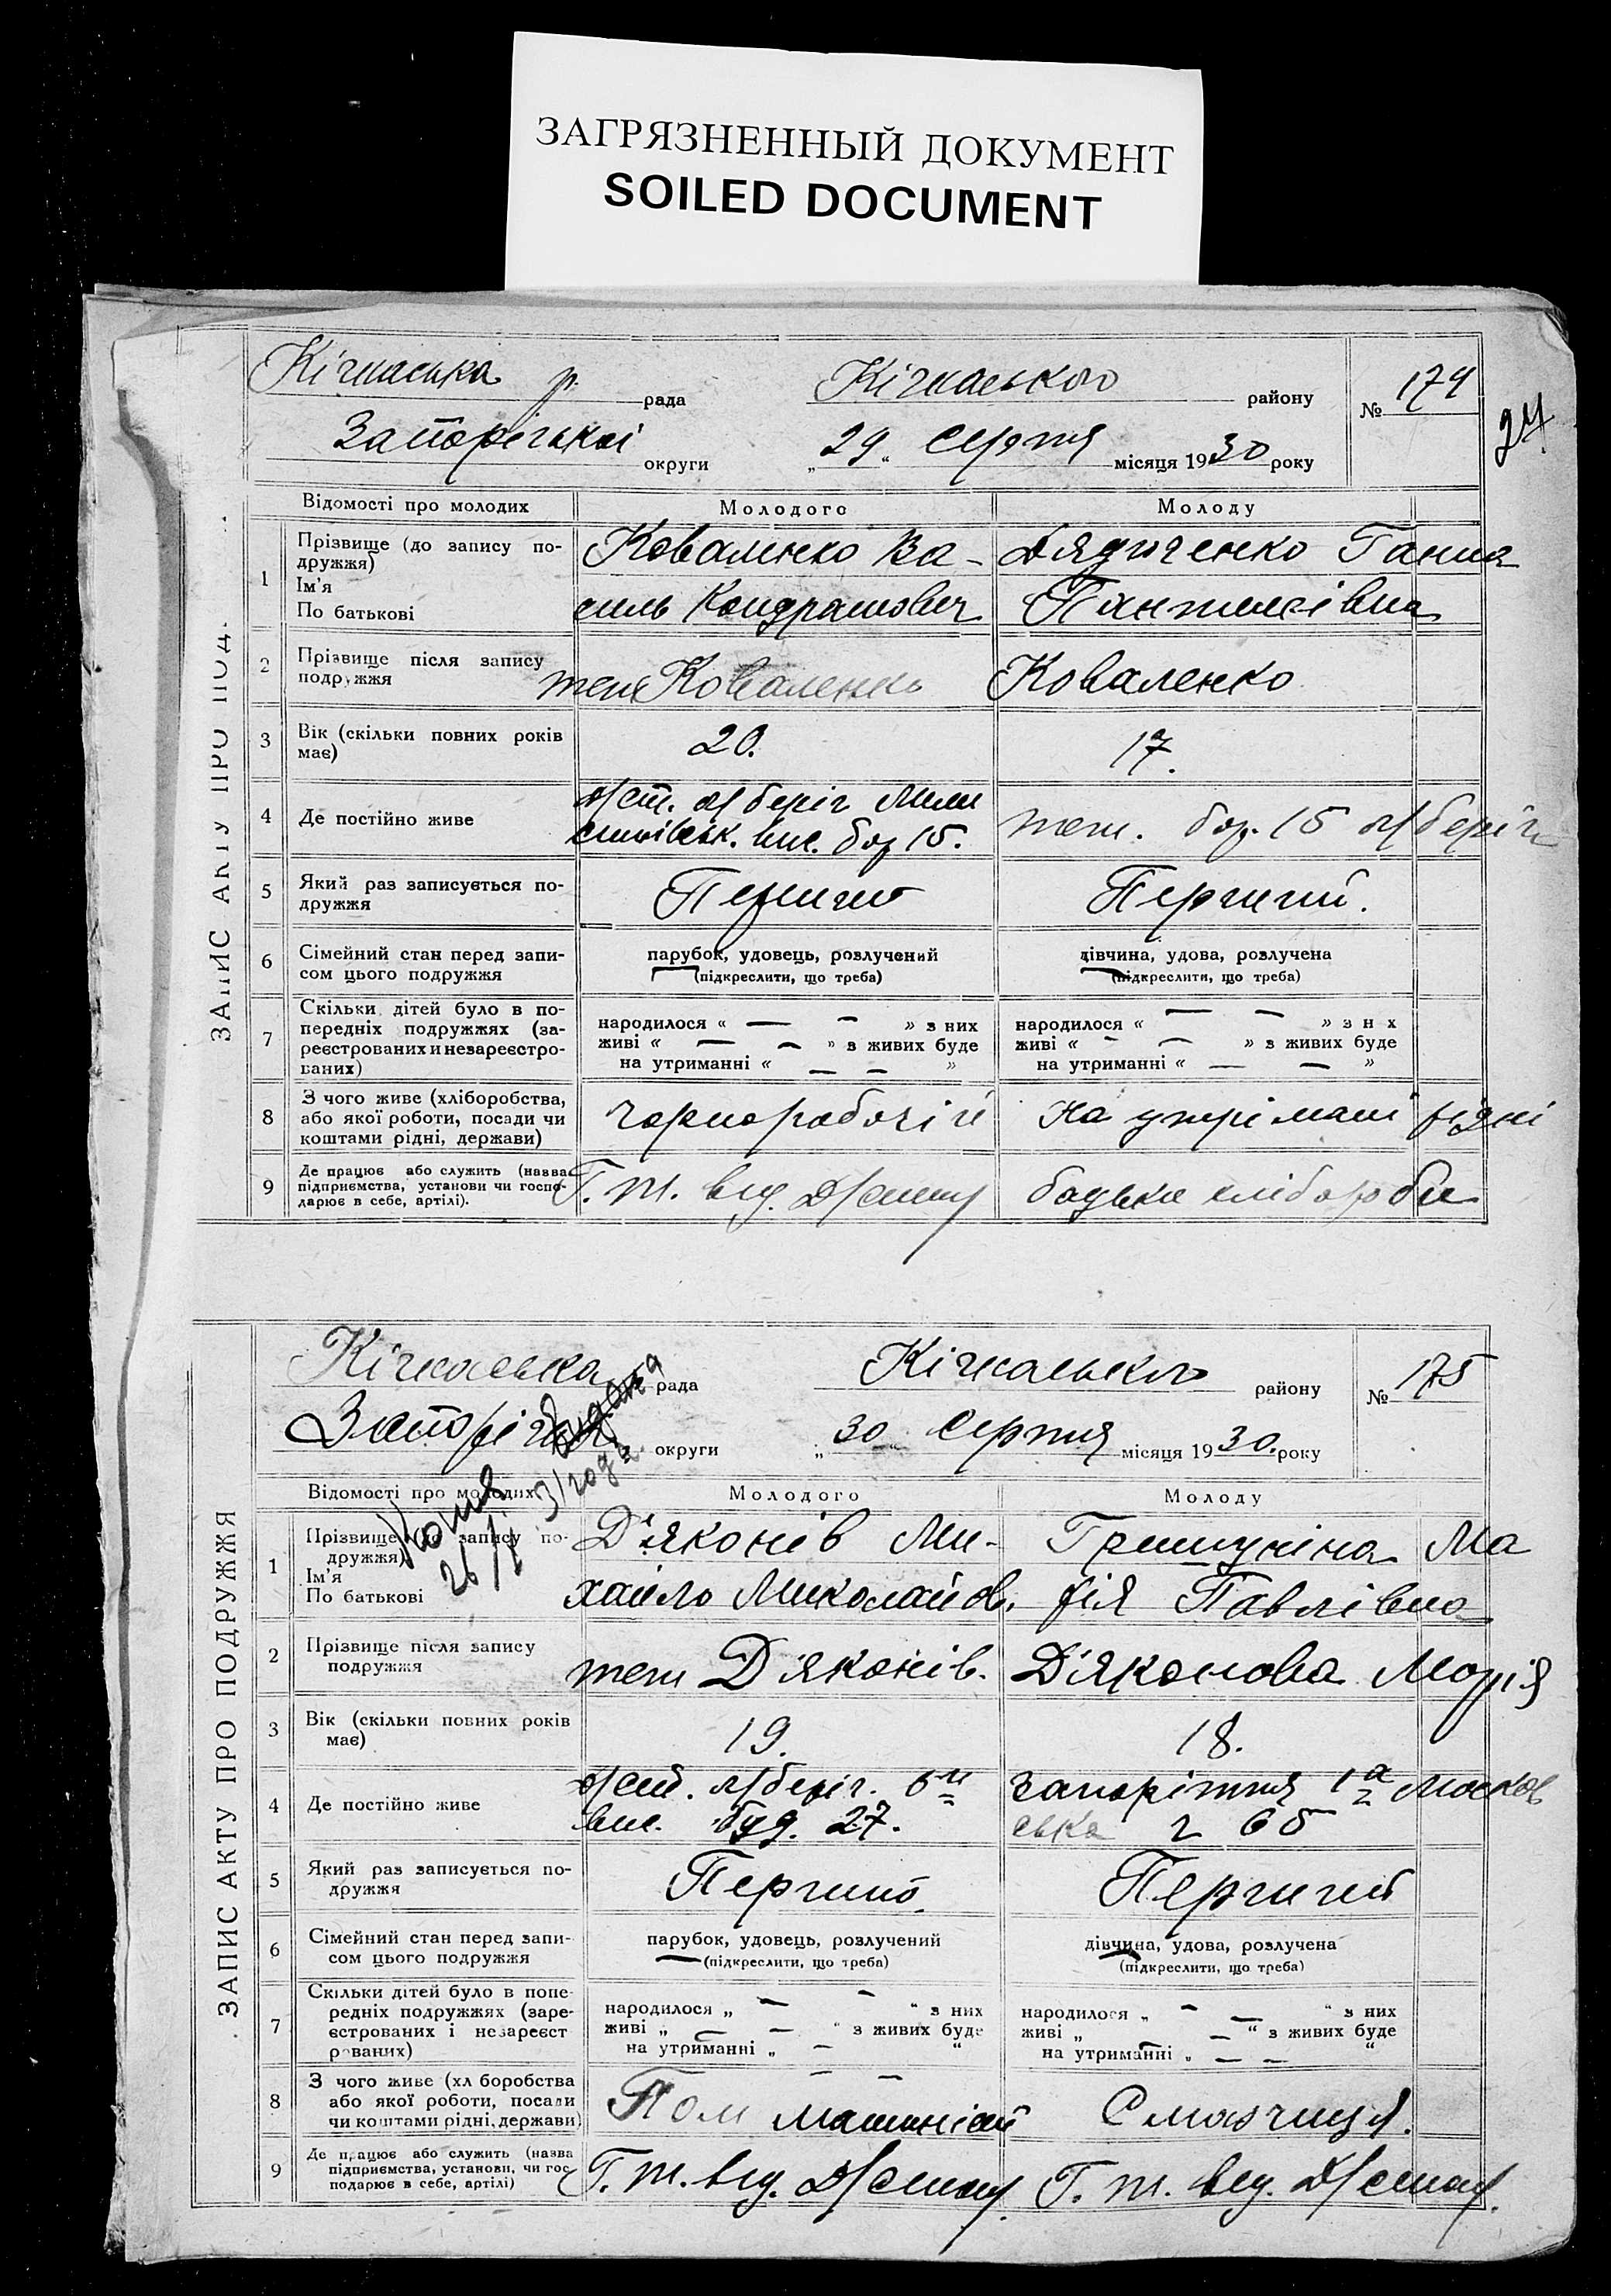 ЗАГРЯЗНЕННЫЙ ДОКУМЕНТ
SOILED DOCUMENT
Кічкаська р. рада Кічкаського району № 174
24
Запорізької округи „29“ серпня місяця 1930 року
Відомості про молодих Молодого Молоду
ЗАПИС АКТУ ПРО ПОД
1 Прізвище (до запису подружжя) Ім'я По батькові
Коваленко Ва-
силь Кондратович
Дядюченко Ганна
Пантелеївна
2 Прізвище після запису подружжя
теж Коваленко Коваленко
3 Вік (скільки повних років має) 20. 17.
4 Де постійно живе
д/ст. п/беріг
вис. бар 15.
теж. бар. 15 п/беріг
5 Який раз записується подружжя Перший Перший.
6 Сімейний стан перед записом цього подружжя
парубок, удовець, розлучений
(підкреслити, що треба)
дівчина, удова, розлучена
(підкреслити, що треба)
7 Скільки дітей було в попередніх подружжях (зареєстрованих и незареєстрованих)
народилося « — — » з них
живі « — — » з живих буде
на утриманні « — — »
народилося « — — » з н х
живі « — — » з живих буде
на утриманні « — — »
8 З чого живе (хліборобства, або якої роботи, посади чи коштами рідні, держави)
чорноробочій На утріманні рідні
9 Де працює або служить (назва підприємства, установи чи господарює в себе, артілі).
Г. т. від. Д/стану батько хлібороби
Кічкаська рада Кічкасько району № 175
округи „30“ серпня місяця 1930. року
Копия видана
26/ 31 года
Відомості про молодих Молодого Молоду
ЗАПИС АКТУ ПРО ПОДРУЖЖЯ
1 Прізвище (до запису подружжя) Ім'я По батькові
Д'яконів Ми-
хайло Миколайов.
Гришуніна Ма
рія Павлівна
2 Прізвище після запису подружжя
теж Д'яконів. Д'яконова Марія
3 Вік (скільки повних років має) 19. 18.
4 Де постійно живе
п/беріг. 6
вис. буд. 27.
Запоріжжя 1а Москов
ська 65
5 Який раз записується подружжя Перший. Перший
6 Сімейний стан перед записом цього подружжя
парубок, удовець, розлучений
(підкреслити, що треба)
дівчина, удова, розлучена
(підкреслити, що треба)
7 Скільки дітей було в попередніх подружжях (зареєстрованих і незареєст рованих)
народилося „ — — “ з них
живі „ — — “ з живих буде
на утриманні „ — “
народилося „ — — “ з них
живі „ — “ з живих буде
на утриманні „ — — “
8 З чого живе (хл боробства або якої роботи, посади чи коштами рідні, держави)
Пом машиніст Смазчиця.
9 Де працює або служить (назва підприємства, установи, чи господарює в себе, артілі)
Г. т. від. Д/стану. Г. т. від. Д/стану.